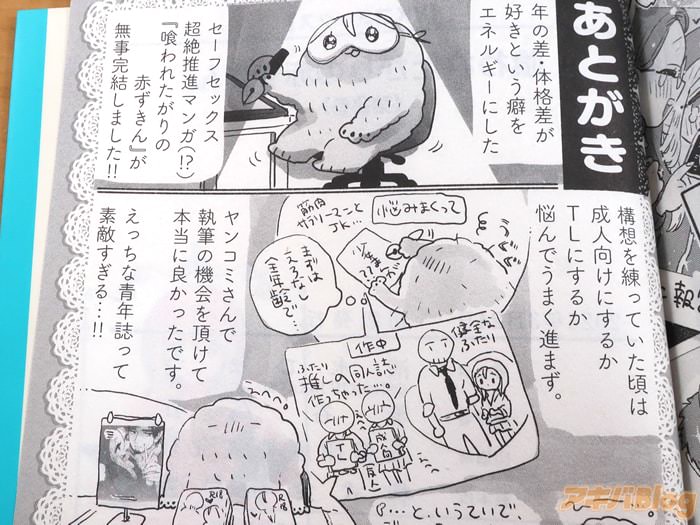 あとがき
年の差・体格差が
好きという癖を
エネルギーにした
セーフセックス
超絶推進マンガ(!?)
『喰われたがりの
赤ずきん』が
無事完結しました!!
構想を練っていた頃は
成人向けにするか
TLにするか
悩んでうまく進まず。
悩みまくって
筋肉
サラリーマンと
JK…
まずは
えろなし
全年齢で…
作中
健全な
ふたり
推しの同人誌
作っちゃった…。
ふたり
成人向
ヤンコミさんで
執筆の機会を頂けて
本当に良かったです。
えっちな青年誌って
素敵すぎる…!!
『…と、いうていで。
アキバBlog